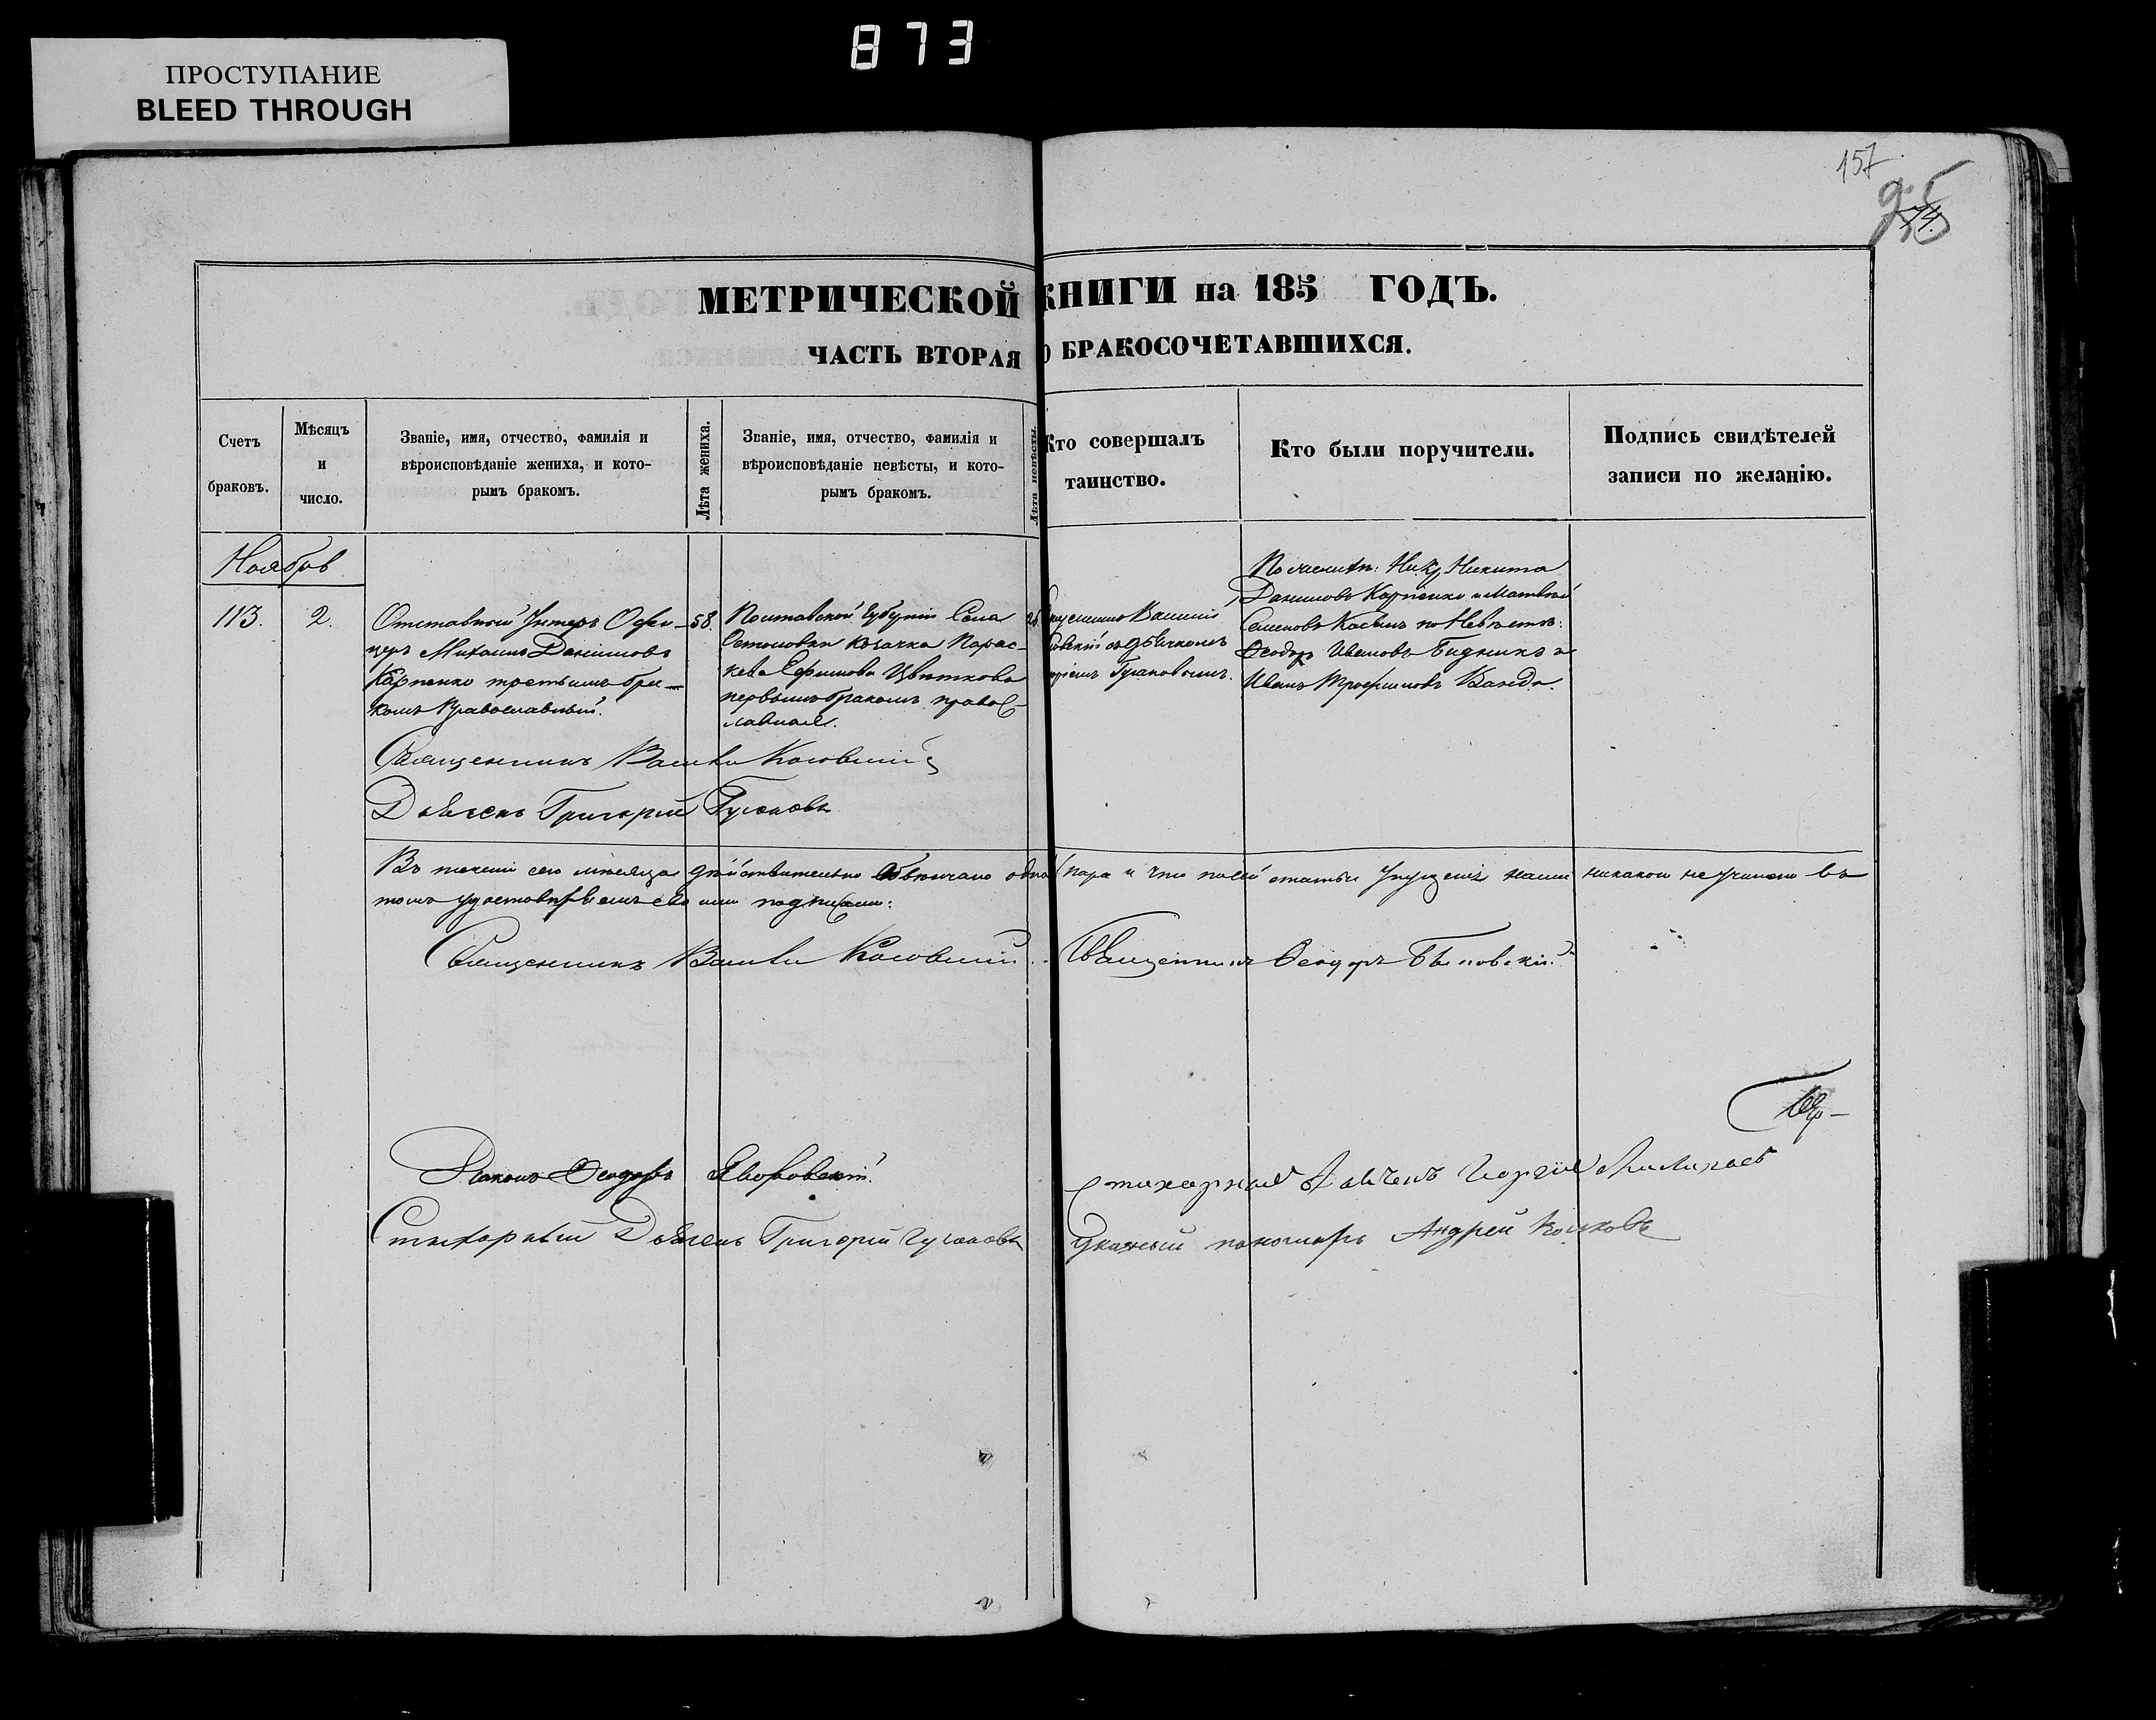 873
ПРОСТУПАНИЕ
BLEED THROUGH
157
95
74.
МЕТРИЧЕСКОЙ КНИГИ на 185 ГОДЪ.
ЧАСТЬ ВТОРАЯ О БРАКОСОЧЕТАВШИХСЯ.
Счетъ
браковъ.
Мѣсяцъ
и
число.
Званіе, имя, отчество, фамилія и
вѣроисповѣданіе жениха, и кото-
рымъ бракомъ.
Лѣта жениха.
Званіе, имя, отчество, фамилія и
вѣроисповѣданіе невѣсты, и кото-
рымъ бракомъ.
Лѣта невѣсты.
Кто совершалъ
таинство.
Кто были поручители.
Подпись свидѣтелей
записи по желанію.
Ноябрь
113.
2.
Отставной Унтеръ Офи-
церъ Михаилъ Даниловъ
Карпенко третьимъ бра-
комъ Православный.
58.
Полтавской Губерніи Села
козачка Парас-
кева Ефимова Цвѣткова
первымъ бракомъ право-
славная.
Василій
съ дьячкомъ
Гусаковымъ.
По женихѣ: Никита
Даниловъ Карпенко и Матвѣй
Семеновъ по Невѣстѣ:
Ѳеодоръ Ивановъ Бидникъ и
Иванъ Трофимовъ
Священникъ Василій
Дьячекъ Григорій Гусаковъ
Въ теченіи сего мѣсяца дѣйствительно обвенчано одна пара и что по сей статьи упущенія нами никакой не учинено въ
томъ удостовѣряемъ своими подписами:
Священникъ Василій
Священникъ Ѳеодоръ
Діаконъ Ѳеодоръ Яворовскій.
Стихарный Дьячекъ Григорій Гусаковъ
Стихарный Дьячекъ Георгій
Указный пономарь Андрей